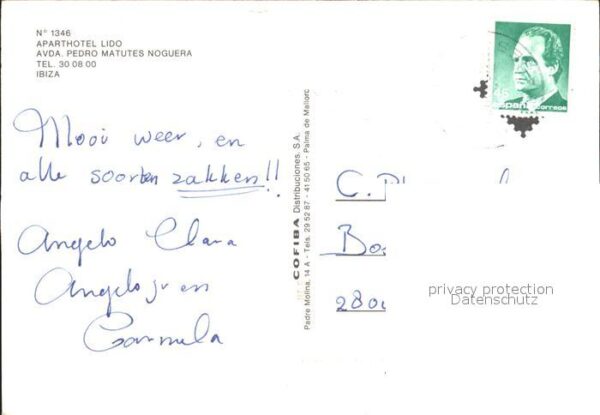 Nº 1346
APARTHOTEL LIDO
AVDA. PEDRO MATUTES NOGUERA
TEL. 30 08 00
IBIZA
Mooi weer, en
alle soorten zakken!!
Angelo Clara
Angelo jr en
Carmela
COFIBA Distribuciones, S.A.
Padre Molina, 14 A - Tels. 29 52 87 - 41 50 65 - Palma de Mallorc
45
España correos
C.
280
privacy protection
Datenschutz